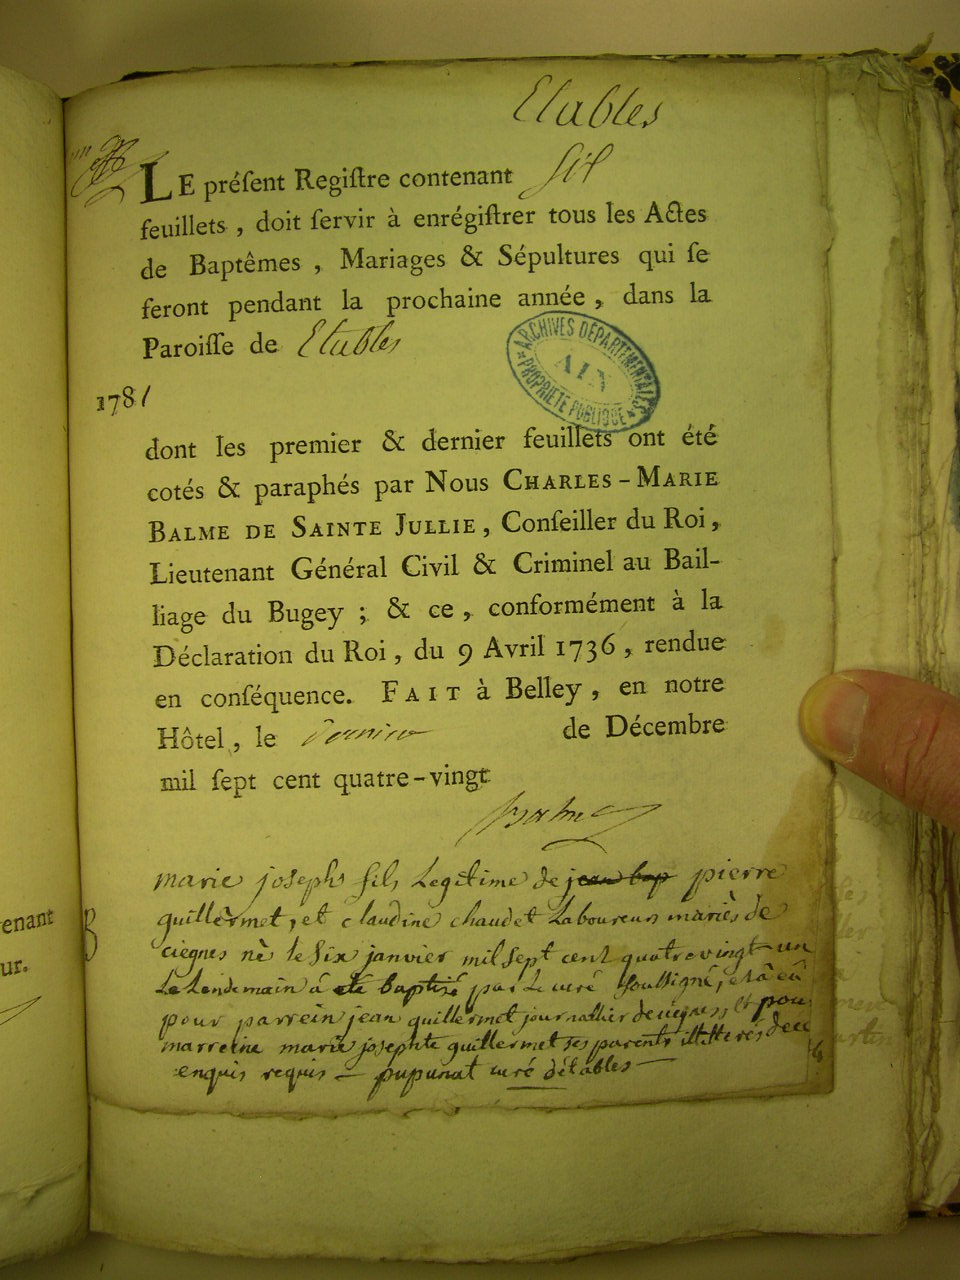 Etables
LE préſent Regiſtre contenant Six
feuillets, doit ſervir à enrégiſtrer tous les Actes
de Baptêmes, Mariages & Sépultures qui ſe
feront pendant la prochaine année, dans la
Paroiſſe de Etables
ARCHIVES DÉPARTEMENTALES
AIN
PROPRIÉTÉ PUBLIQUE
1781
dont les premier & dernier feuillets ont été
cotés & paraphés par Nous CHARLES-MARIE
BALME DE SAINTE JULLIE, Conſeiller du Roi,
Lieutenant Général Civil & Criminel au Bail-
liage du Bugey ; & ce, conformément à la
Déclaration du Roi, du 9 Avril 1736, rendue
en conſéquence. FAIT à Belley, en notre
Hôtel, le de Décembre
mil ſept cent quatre-vingt
Balme
marie joseph fils Legitime de jean bap pierre
guillermet, et claudine chaudet Laboureurs mariès de
ciegnes nè le six janvier mil sept cent quatre vingt un
Le Lendemain á été baptisé par Le curé soussigné, et à eu
pour parrein jean guillermet journallier de ciegnes et pour
marreine marie josephte guillermet ses parents illitterés de ce
enquis requis — pupunat curé détables —
enant
ur.